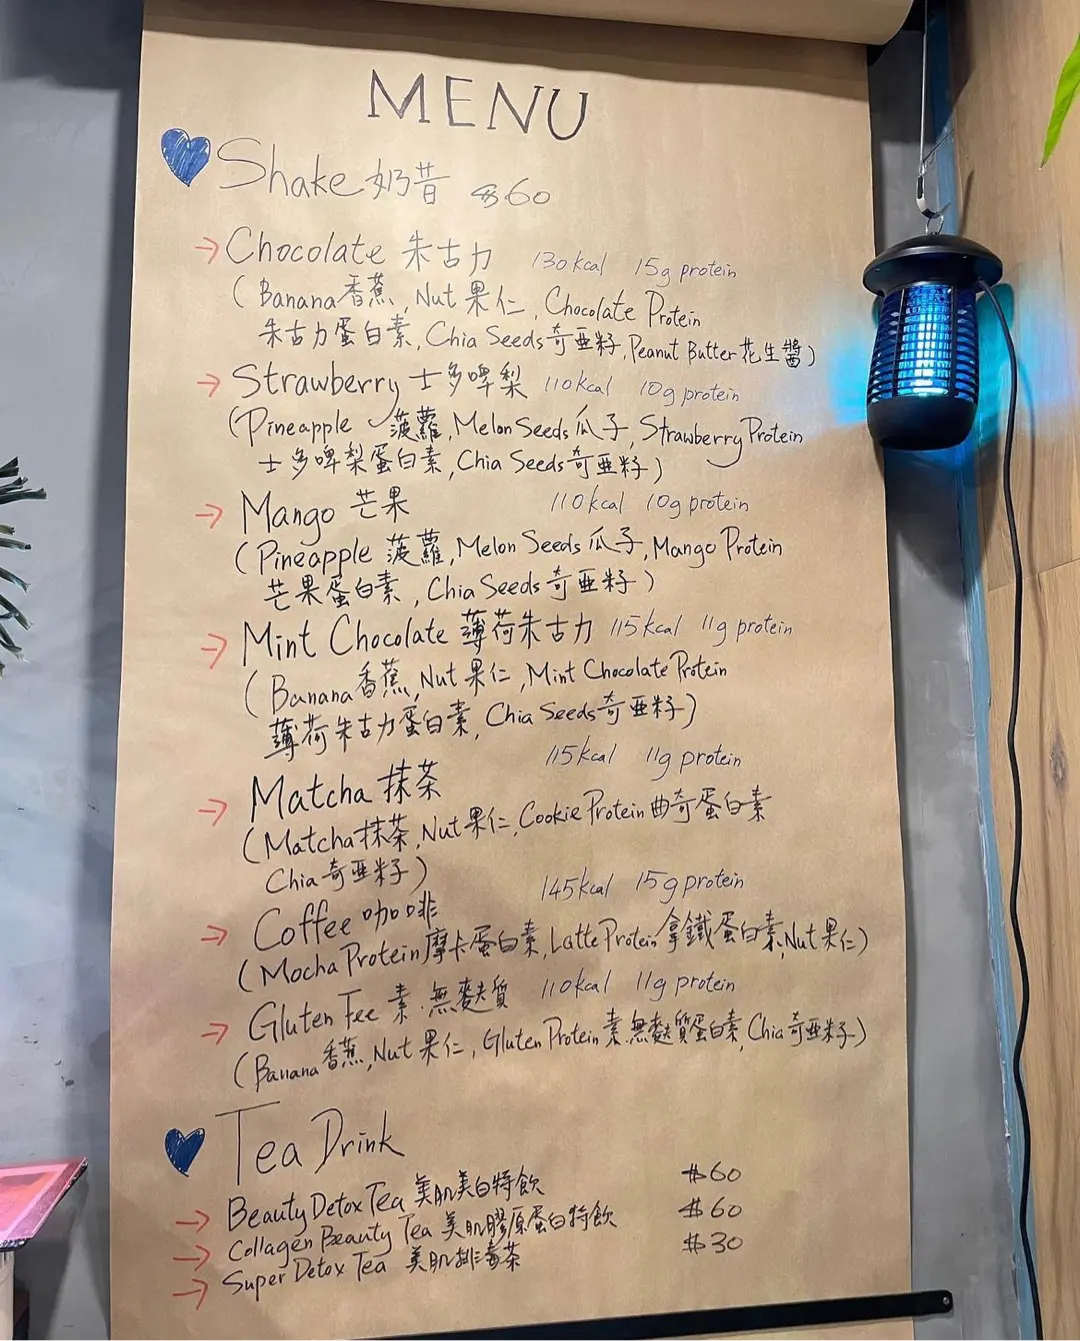 MENU
Shake 奶昔 $60
Chocolate 朱古力 130kcal 15g protein
(Banana香蕉, Nut 果仁, Chocolate Protein
朱古力蛋白素, Chia Seeds奇亞籽, Peanut Butter花生醬)
Strawberry 士多啤梨 110kcal 10g protein
(Pineapple 菠蘿, Melon Seeds 瓜子, Strawberry Protein
士多啤梨蛋白素, Chia Seeds 奇亞籽)
Mango 芒果 110kcal 10g protein
(Pineapple 菠蘿, Melon Seeds 瓜子, Mango Protein
芒果蛋白素, Chia Seeds 奇亞籽)
Mint Chocolate 薄荷朱古力 115kcal 11g protein
(Banana香蕉, Nut 果仁, Mint Chocolate Protein
薄荷朱古力蛋白素, Chia Seeds奇亞籽)
115kcal 11g protein
Matcha 抹茶
(Matcha抹茶, Nut果仁, Cookie Protein曲奇蛋白素
Chia奇亞籽)
145kcal 15g protein
Coffee 咖啡
(Mocha Protein摩卡蛋白素, Latte Protein拿鐵蛋白素, Nut果仁)
Gluten Fee 素.無麩質 110kcal 11g protein
(Banana香蕉, Nut 果仁, Gluten Protein 素.無麩質蛋白素, Chia奇亞籽)
Tea Drink
Beauty Detox Tea 美肌美白特飲 $60
Collagen Beauty Tea 美肌膠原蛋白特飲 $60
Super Detox Tea 美肌排毒茶 $30